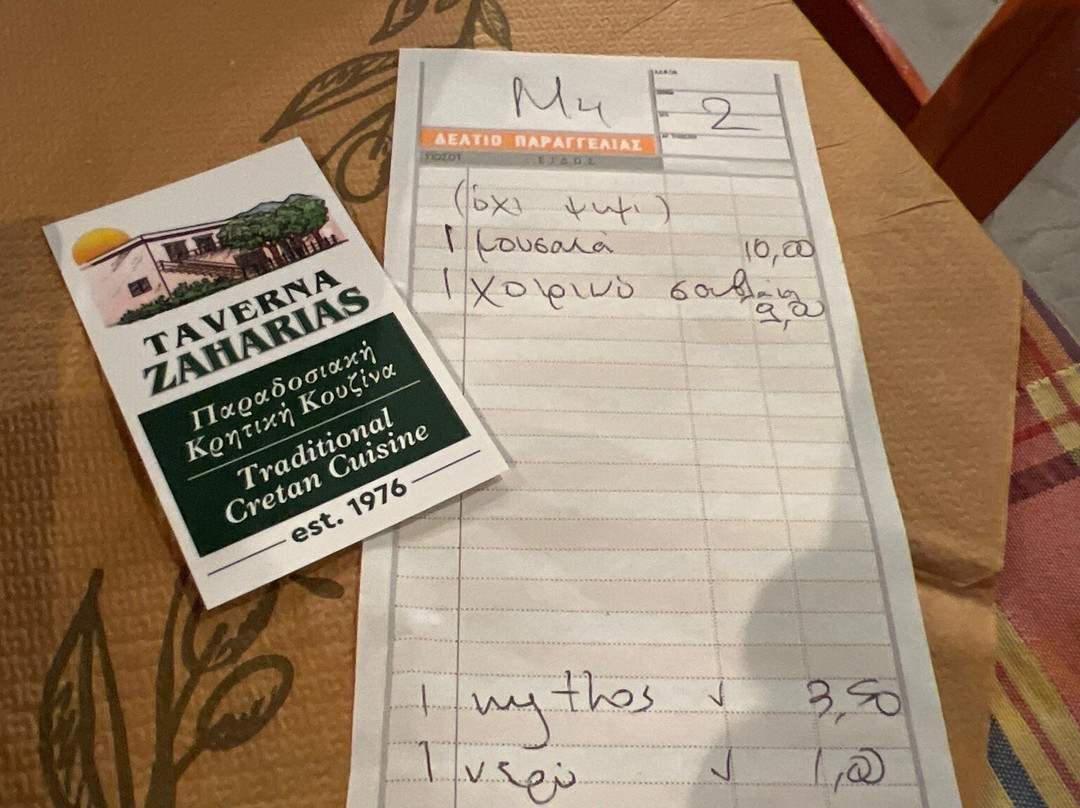 TAVERNA
ZAHARIAS
Παραδοσιακή
Κρητική Κουζίνα
Traditional
Cretan Cuisine
est. 1976
Μη
2
ΔΕΛΤΙΟ ΠΑΡΑΓΓΕΛΙΑΣ
ΠΟΣΟΤ ΕΙΔΟΣ
(όχι ψωμι)
1 μουσακά 10,00
1 χοιρινό σουβλάκι
9,00
1 mythos √ 3,50
1 νερό √ 1,00